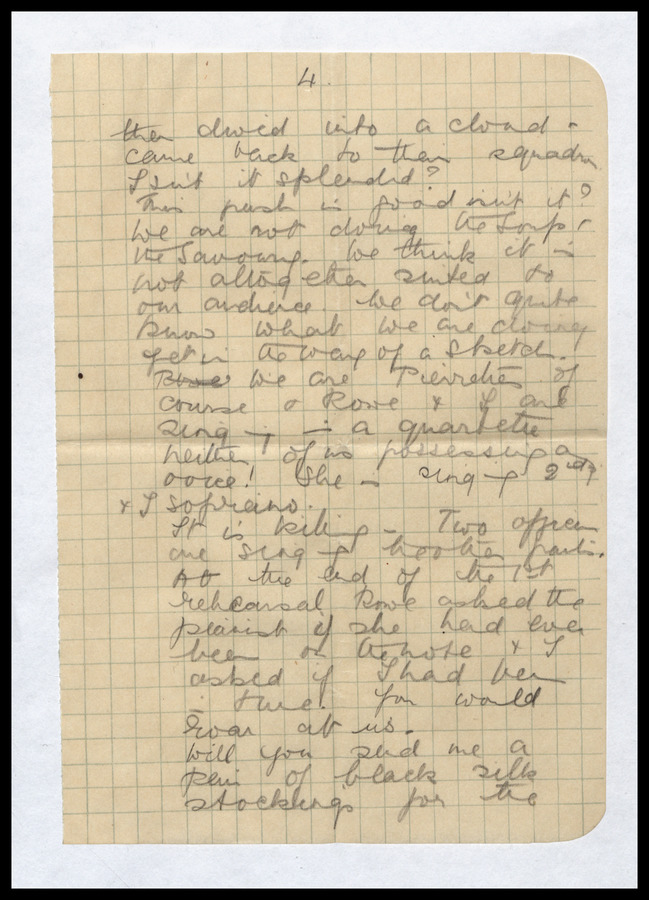 4.
then dived into a cloud &
came back to their squadron
Isn't it splendid?
This push is good isn't it?
We are not doing the Soup &
the Savoury. We think it is
not altogether suited to
our audience. We don't quite
know what we are doing
yet in the way of a Sketch.
We are Pierrettes of
course & Rowe & I are
singing in a quartette
neither of us possessing a
voice! She is singing 2nd
& I Soprano.
It is killing – Two officers
are singing the other parts.
At the end of the 1st
rehearsal Rowe asked the
pianist if she had ever
been on the note & I
asked if I had been
in tune. You would
roar at us.
Will you send me a
pair of black silk
stockings for the